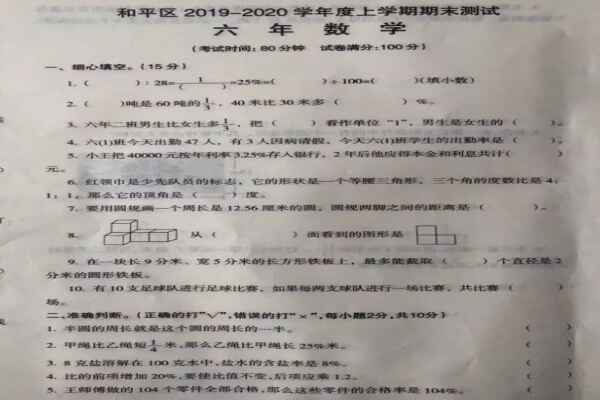 和平区 2019-2020 学年度上学期期末测试
六 年 数 学
(考试时间: 80 分钟 试卷满分: 100 分)
一、细心填空。(15 分)
1. ( ) : 28= 1/( ) =25%=( ) ÷100=( )(填小数)
2. ( )吨是 60 吨的 1/3 , 40 米比 30 米多( )%。
3. 六年二班男生比女生多 1/3 , 把( )看作单位“1”, 男生是女生的( )。
4. 六(1)班今天出勤 47 人, 有 3 人因病请假, 今天六(1)班学生的出勤率是( )。
5. 小王把 40000 元按年利率 3.25% 存入银行, 2 年后他应得本金和利息共计( )
元。
6. 红领巾是少先队员的标志, 它的形状是一个等腰三角形, 三个角的度数比是 4:
1: 1, 那么它的顶角是( )度。
7. 要用圆规画一个周长是 12.56 厘米的圆, 圆规两脚之间的距离是( )。
8. 从( )面看到的图形是
9. 在一块长 9 分米、宽 5 分米的长方形铁板上, 最多能截取( )个直径是 2
分米的圆形铁板。
10. 有 10 支足球队进行足球比赛, 如果每两支球队进行一场比赛, 共比赛( )
场。
二、准确判断。(正确的打“√”, 错误的打“×”, 每小题2分, 共10分)
1. 半圆的周长就是这个圆的周长的一半。 ( )
2. 甲绳比乙绳短 1/4 米, 那么乙绳比甲绳长 25%米。 ( )
3. 8 克盐溶解在 100 克水中, 盐水的含盐率是 8%。 ( )
4. 比的前项增加 20%, 要使比值不变, 后项应乘 1.2。 ( )
5. 王师傅做的 104 个零件全部合格, 那么这些零件的合格率是 104%。 ( )